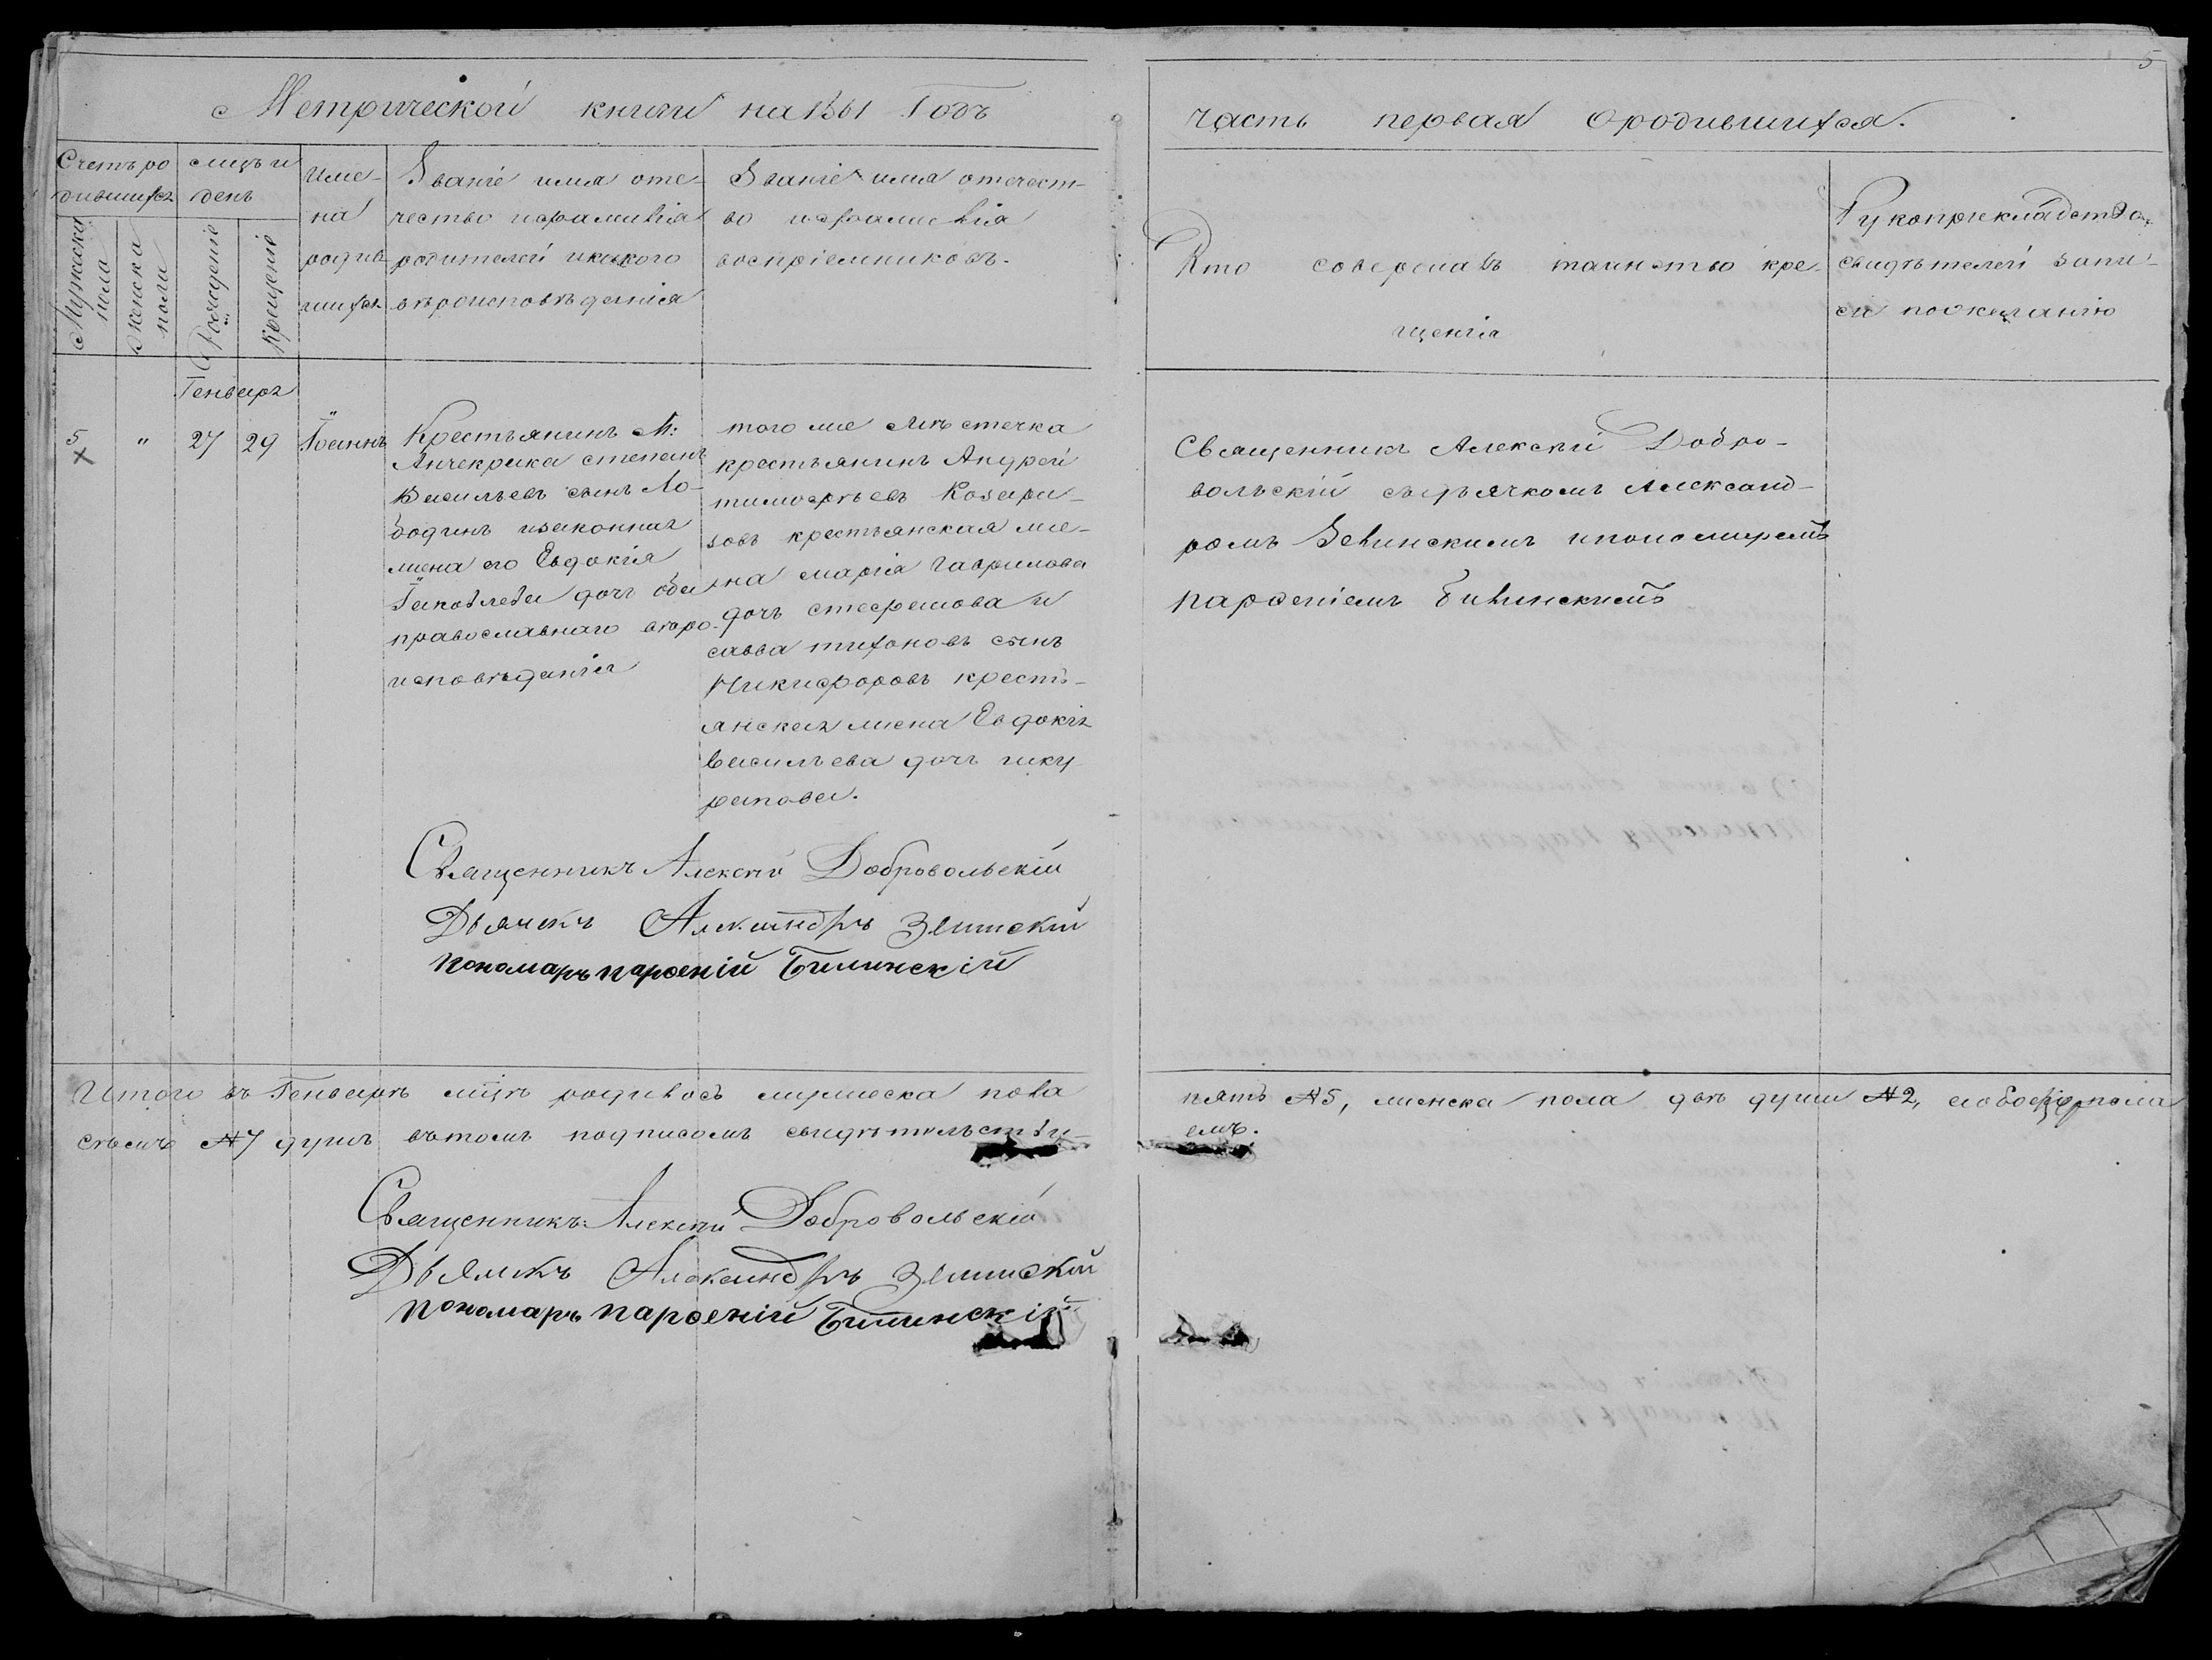 5
Метрической книги на 1861 Годъ
часть первая о родившихся.
Счетъ ро
дившихся
мѣцъ и
день
Мужеска
пола
Женска
пола
Рожденіе
Крещеніе
Име-
на
родив
шихся
Званіе имя оте-
чество и фамилія
родителей и какого
вѣроисповѣденія
Званіе имя отечест-
во и фамилія
воспріемниковъ.
Кто совершалъ таинство кре-
щенія
Рукоприкладство
свидѣтелей запи-
си по желанію
Генваря
5 " 27 29 Іоаннъ
Крестьянинъ М:
Анчекрака степанъ
Васильевъ сынъ Ло-
бодинъ и законная
жена его Евдокія
Іаковлева дочь оба
православнаго вѣро-
исповѣданія
того же Мѣстечка
крестьянинъ Андрей
тимофѣевъ Козыри-
зовъ крестьянская же-
на марія гаврилова
дочь стефанова и
савва тихоновъ сынъ
Никифоровъ кресть-
янская жена Евдокія
васильева дочь шку
ратова.
Священникъ Алексѣй Добро-
вольскій съ дьячкомъ Александ-
ромъ Зелинскимъ и пономаремъ
парѳеніемъ Билинскимъ
Священникъ Алексѣй Добровольскій
Дьячекъ Александръ Зелинскій
пономарь парѳеній Билинскій
Итого въ Генварѣ мцѣ родилось мужеска пола
пять №5, женска пола двѣ души №2, а обоего пола
семь №7 душъ въ томъ подписомъ свидѣтельству-
емъ.
Священникъ: Алексѣй Добровольскій
Дьячекъ Александръ Зелинскій
пономарь парѳеній Билинскій